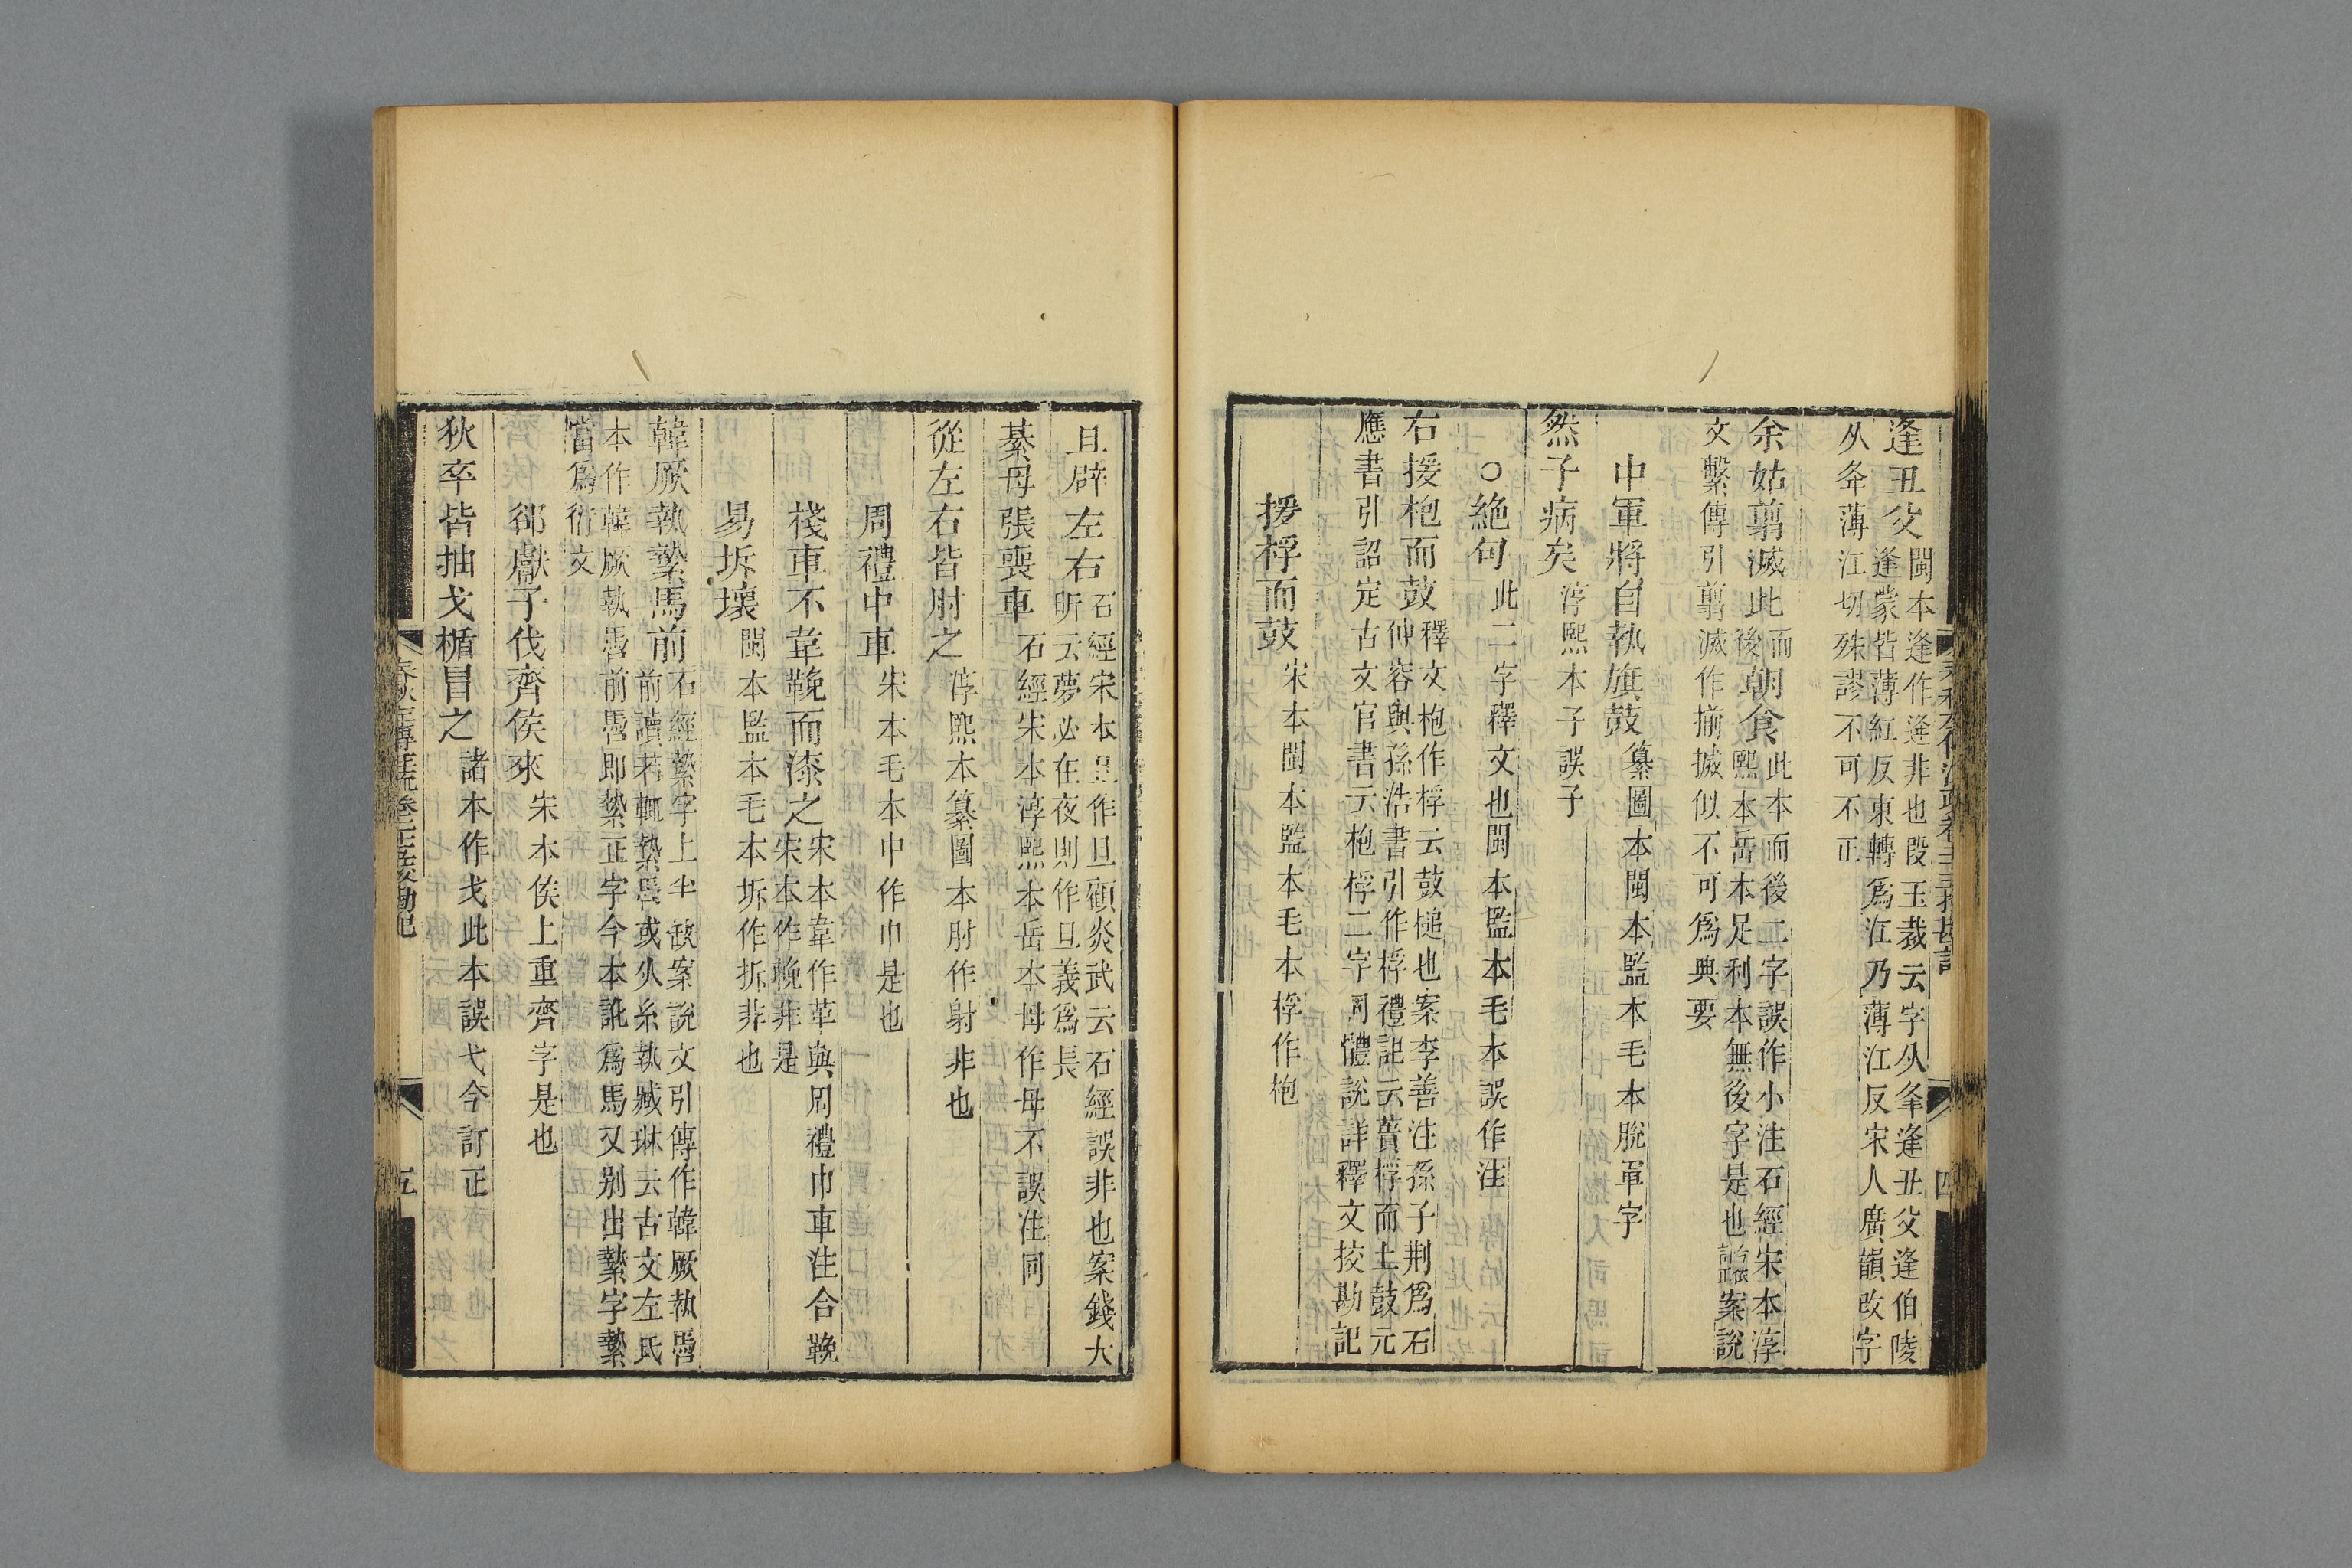 逢丑父閩本逢作逄非也段玉裁云字从夆逢丑父逢伯陵
逢蒙皆薄紅反東轉爲江乃薄江反宋人廣韻改字
从夅薄江切殊謬不可不正
余姑翦滅此而後朝食此本而後二字誤作小注石經宋本淳
熙本岳本足利本無後字是也案說
文繫傳引翦滅作揃㨹似不可爲典要
中軍將自執旗鼓纂圖本閩本監本毛本脫軍字
然子病矣淳熙本子誤子
○絶句此二字釋文也閩本監本毛本誤作注
右援枹而鼓釋文枹作桴云鼓槌也案李善注孫子荆爲石
仲容與孫浩書引作桴禮記云蕢桴而土鼓元
應書引詔定古文官書云枹桴二字同體說詳釋文挍勘記
援桴而鼓宋本閩本監本毛本桴作枹
四
且辟左右石經宋本且作旦顧炎武云石經誤非也案錢大
昕云夢必在夜則作旦義爲長
綦毋張喪車石經宋本淳熙本岳本毋作母不誤注同
從左右皆肘之淳熙本纂圖本肘作射非也
周禮中車宋本毛本中作巾是也
棧車不韋鞔而漆之宋本韋作革與周禮巾車注合鞔
宋本作輓非是
易坼壞閩本監本毛本坼作拆非也
韓厥執縶馬前石經縶字上半缺案說文引傳作韓厥執馽
前讀若輒縶馽或从糸執臧琳云古文左氏
本作韓厥執馽前馽即縶正字今本訛爲馬又别出縶字縶
當爲衍文
郤獻子伐齊侯來宋本侯上重齊字是也
狄卒皆抽戈楯冒之諸本作戈此本誤弋今訂正
五